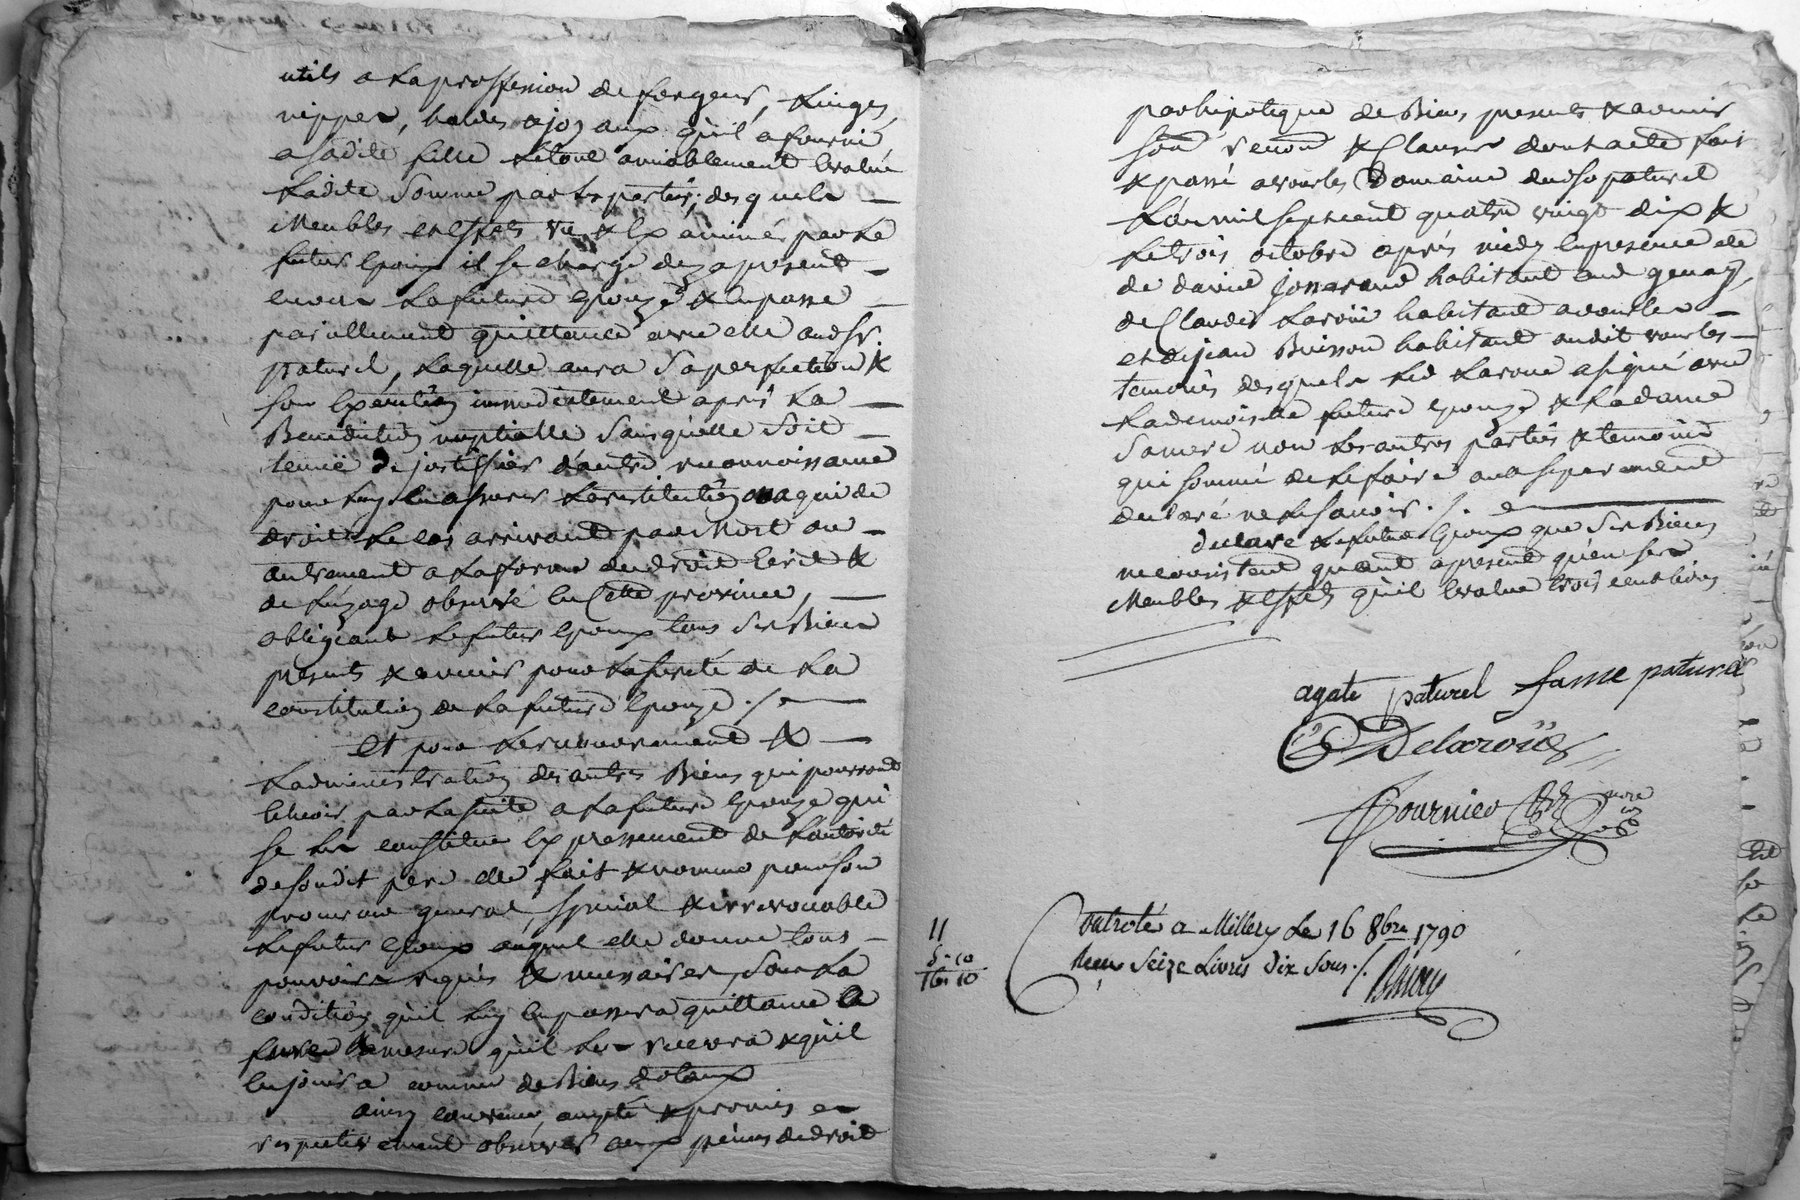 utils a la proffession de forgeur, linges
nippes, hardes & joyaux qu'il a fourni
a sadite fille le tout amiablement evalué
ladite somme par les parties, desquels
Meubles et effets vu & examinés par le
futur epoux il se charge dez a present
envers la future epouze & en passe
pareillement quittance avec elle audt sr.
paturel, laquelle aura sa perfection &
son execution immediatement après la
Benediction nuptialle sans qu'elle soit
tenuë de justiffier d'autre reconnoissance
pour luy en assurer la restitution ou a qui de
droit le cas arrivant par mort ou
autrement a la forme du droit ecrit &
de l'uzage observé en cette province,
obligeant le futur epoux tous ses Biens
presents & avenir pour la sureté de la
constitution de la future epouze ./.
et pour le recouvrement &
l'administration des autres Biens qui pourront
echeoir par la suite a la future epouze qui
se les constitue expressement de l'autorité
de sondit pere elle fait & nomme pour son
procureur general special & irrevocable
le futur epoux auquel elle donne tous
pouvoirs requis & necessaires, sous la
condition qu'il luy en passera quittance a
fur & mesure qu'il les recevra & qu'il
en jouira comme de Biens dotaux
ainsy convenu accepté & promis
respectivement observer aux peines de droit
par hipoteque de Biens presents & avenir
sous renon & clauses dont acte fait
& passé a vourles Domaine dudt sr paturel
l'an mil sept cent quatre vingt dix &
le trois octobre après midy en presence de
de david jonserand habitant aud genay,
de Claude Laroüe habitant a vourles
et de jean Buisson habitant audit vourles
temoins desquels led Laroue a signé avec
la demoiselle future epouze & la dame
sa mere non les autres parties & temoins
qui sommé de le faire on a separement
declaré ne le savoir ./.
declare le futur epoux que ses Biens
ne consistent quant a present qu'en ses
Meubles & effets qu'il evalue trois cent livres
agate paturel fame paturel
C Delaroüe
Fournier
11
5 - 10
16 10
controlé a Millery Le 16 8bre 1790
Reçu seize Livres dix sous ./.